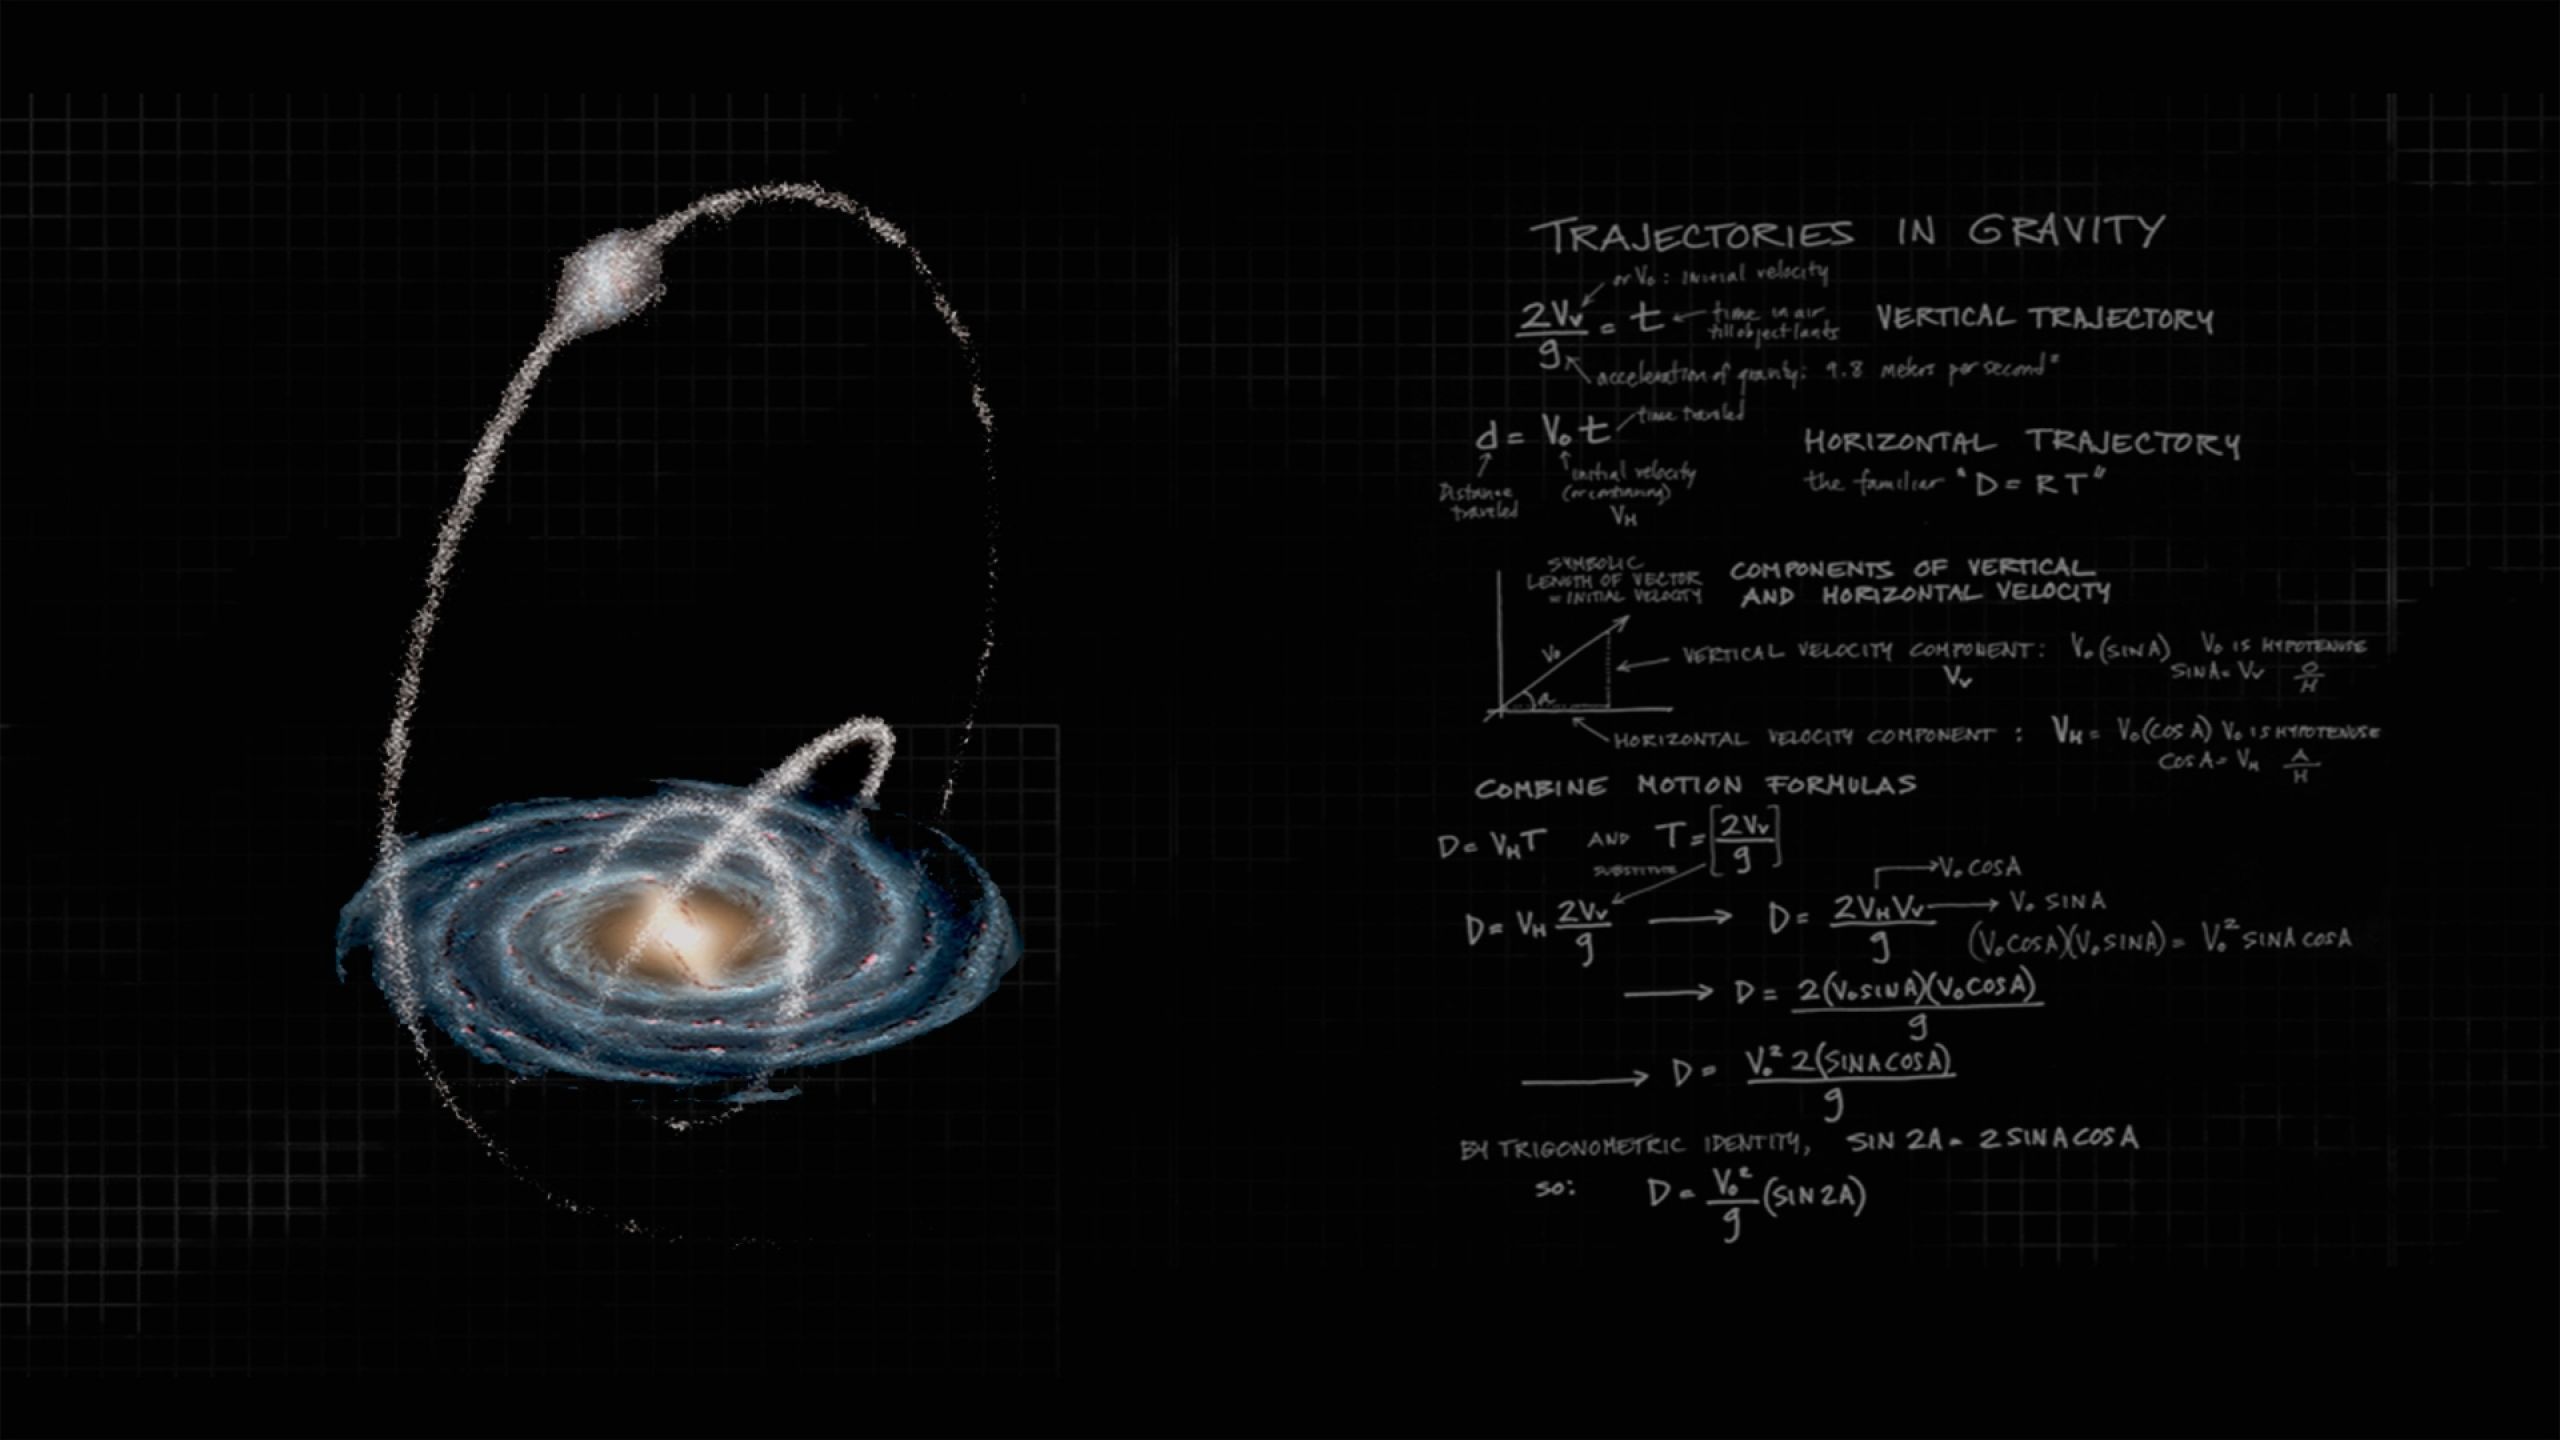 TRAJECTORIES IN GRAVITY
or Vo: initial velocity
2Vv/g = t
time in air
till object lands
VERTICAL TRAJECTORY
acceleration of gravity: 9.8 meters per second²
d = Vo t
time traveled
HORIZONTAL TRAJECTORY
the familiar "D = RT"
Distance traveled
initial velocity
VH
SYMBOLIC
LENGTH OF VECTOR
= INITIAL VELOCITY
COMPONENTS OF VERTICAL
AND HORIZONTAL VELOCITY
Vo
a
VERTICAL VELOCITY COMPONENT: Vo(SINA) Vo IS HYPOTENUSE
Vv
SINA = Vv O/H
HORIZONTAL VELOCITY COMPONENT: VH = Vo(COSA) Vo IS HYPOTENUSE
COSA = VH A/H
COMBINE MOTION FORMULAS
D = VHT AND T = [2Vv/g]
SUBSTITUTE
D = VH 2Vv/g → D = 2VHVv/g
→ Vo COSA
→ Vo SINA
(VoCOSA)(VoSINA) = Vo² SINA COSA
→ D = 2(VoSINA)(VoCOSA)/g
→ D = Vo² 2(SINACOSA)/g
BY TRIGONOMETRIC IDENTITY, SIN 2A = 2 SINACOSA
SO: D = Vo²/g (SIN2A)